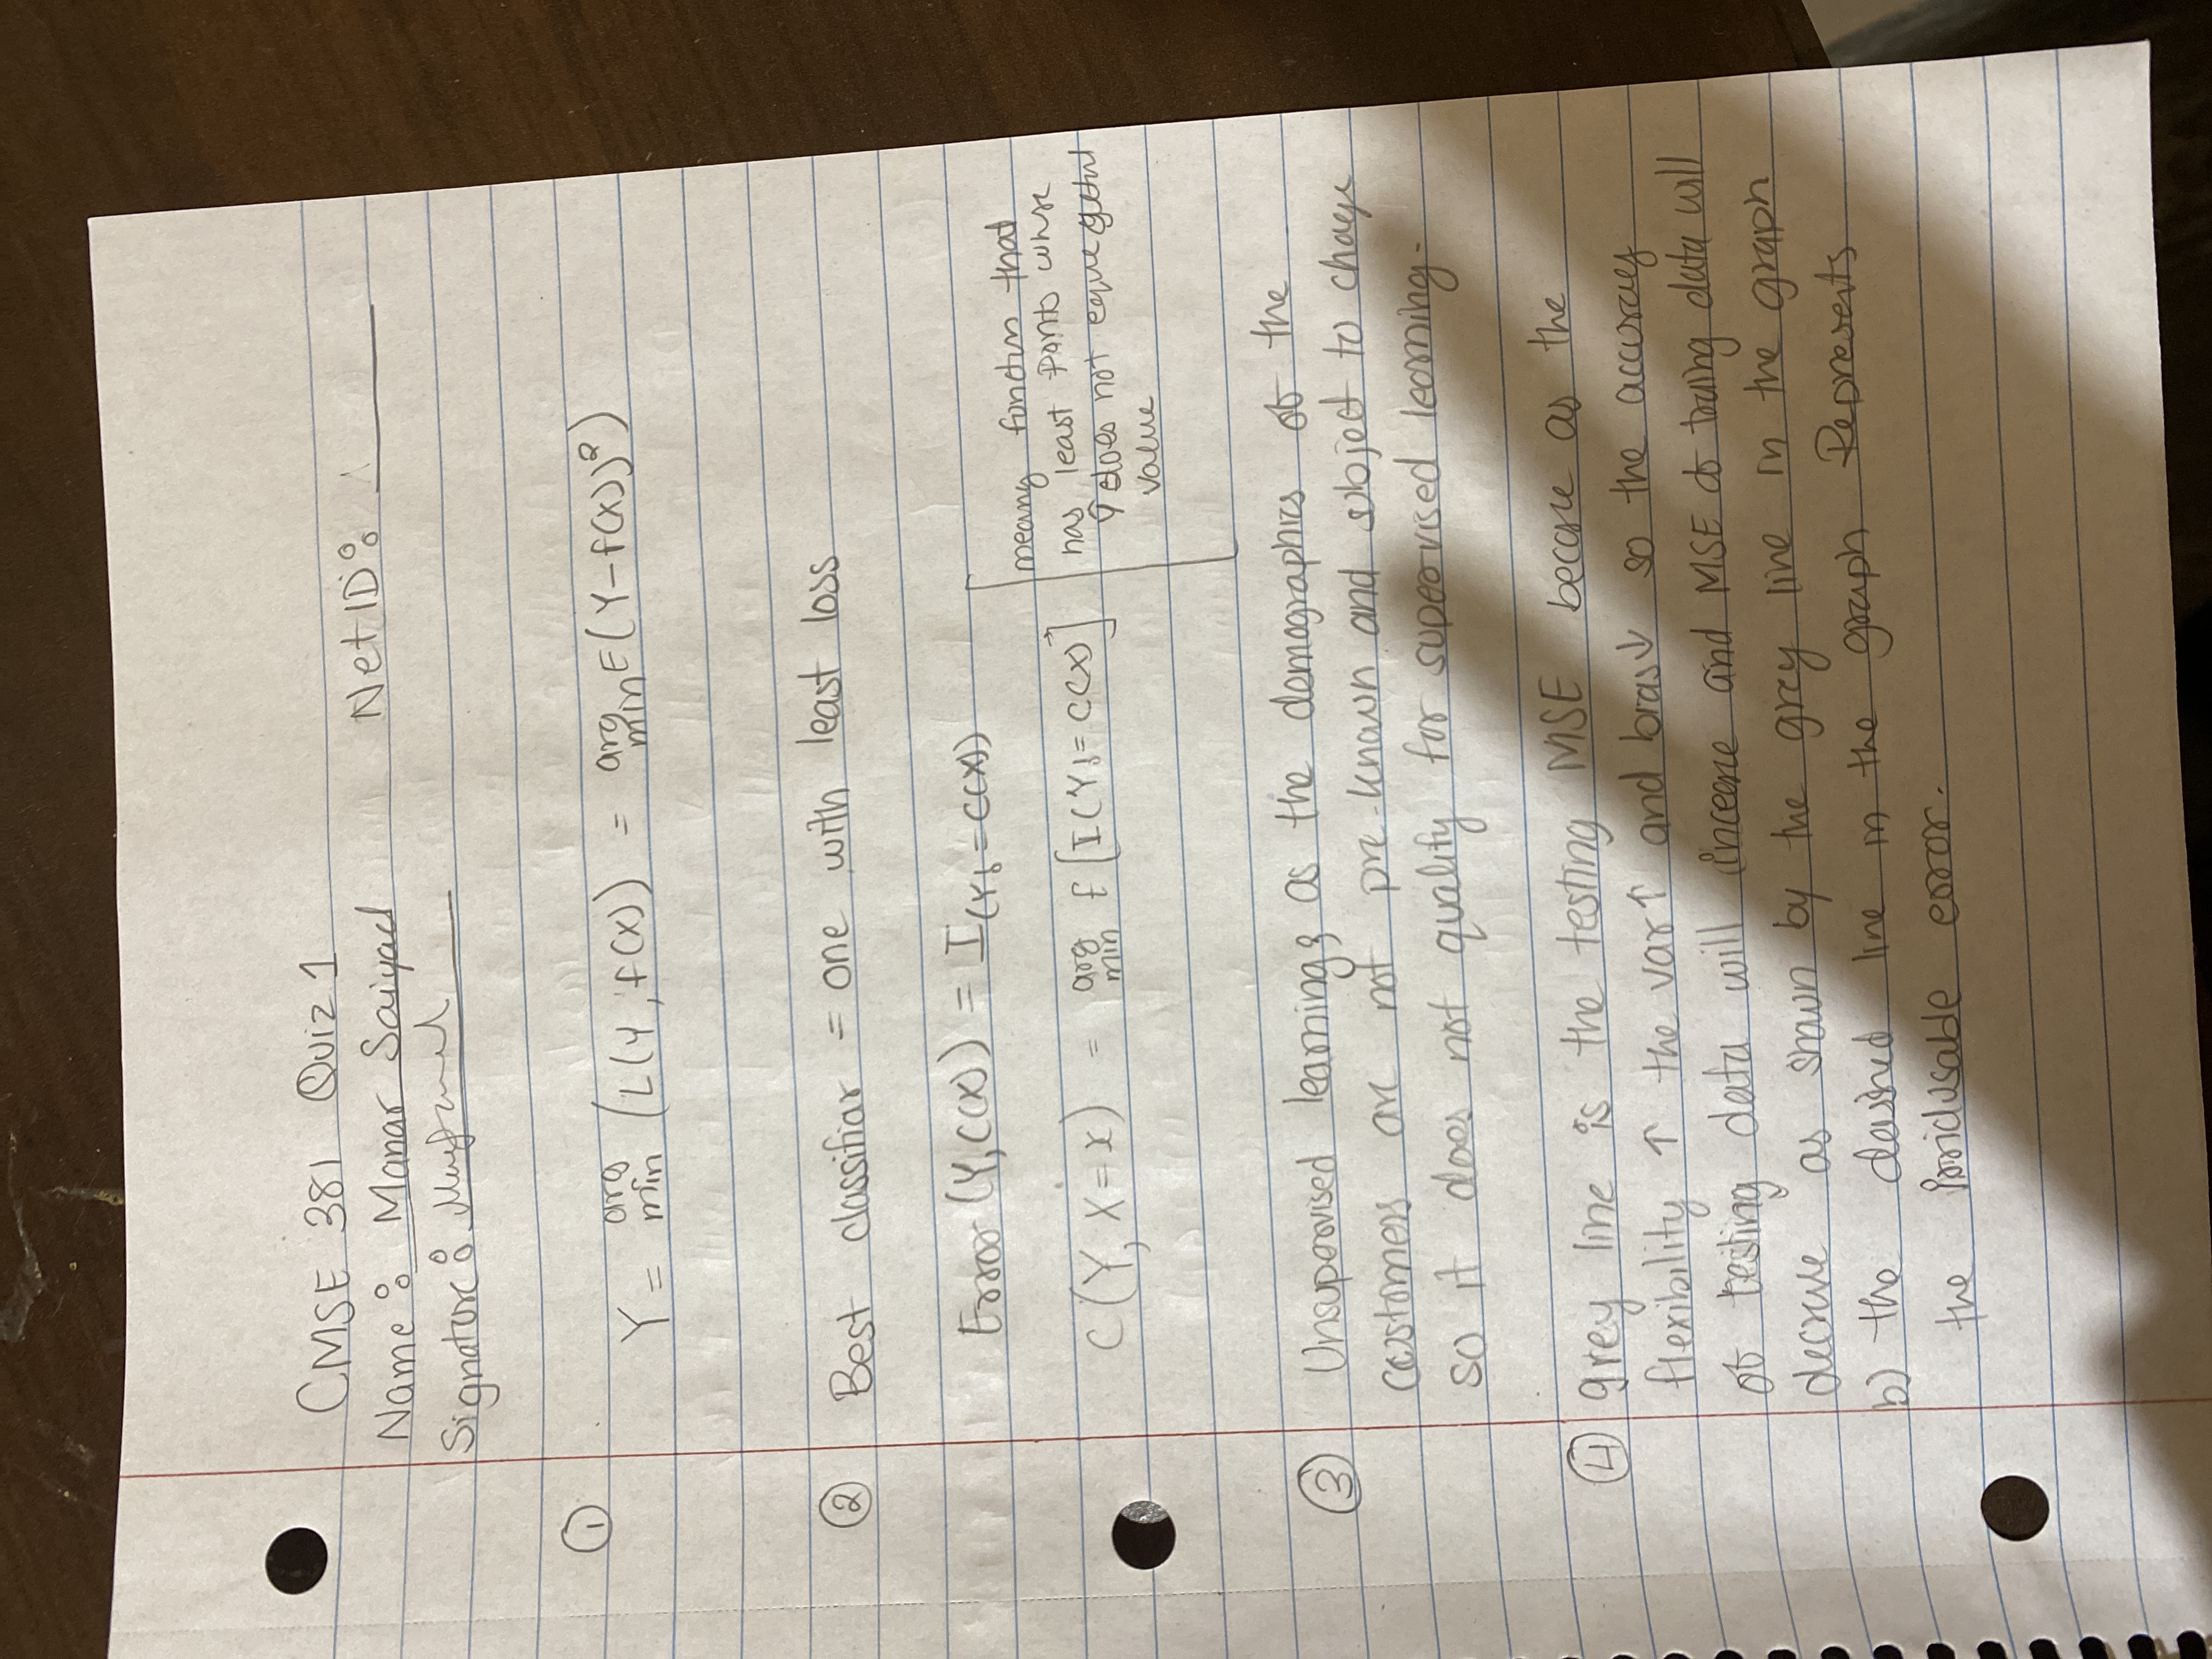 CMSE 381 Quiz 1
Name: Manar Saiyad NetID:
Signature:
① Y = arg min (L(Y, f(X)) = arg min E(Y-f(X))²)
② Best classifiar = one with least loss
Error (Y, C(X)) = I(Y!=C(X))
C(Y, X=x) = arg min E[I(Y!=C(X)]
meang functun that
has least points whre
Ŷ does not eque
value
③ Unsupervised learning; as the demographics of the
customers are not pre-known and subject to chage
so it does not qualify for supervised learning.
④ grey line is the testing MSE becase as the
flexibility ↑ the var↑ and bias↓ so the accuracy
of testing data will increase and MSE of traing data will
decrase as shown by the grey line in the graph
b) the dashed line in the graph Represents
the irridusable error.